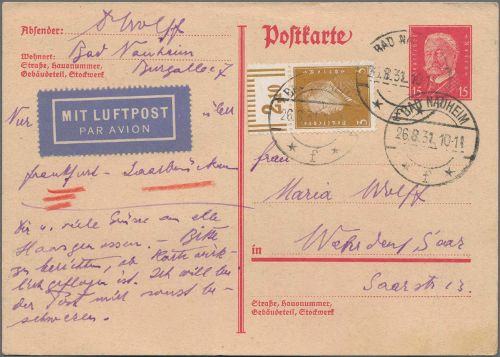 Absender: Dr Wolff
Wohnort: Bad Nauheim
Straße, Hausnummer, Burgallee 7
Gebäudeteil, Stockwerk
MIT LUFTPOST
PAR AVION
Nur
Frankfurt - Saarbrücken
Dir u. viele Grüsse an alle
Hausgenossen. — Bitte
zu berichten, ob Karte wirk-
lich geflogen ist. Ich will bei
der Post mich sonst be-
schweren.
Postkarte
Deutsches Reich
5
15 15
BAD NAUHEIM
26.8.31. 10-11
f
BAD NAUHEIM
26.8.31. 10-11
f
Frau
Maria Wolff
in Wehrden / Saar
Saarstr 13.
Straße, Hausnummer,
Gebäudeteil, Stockwerk